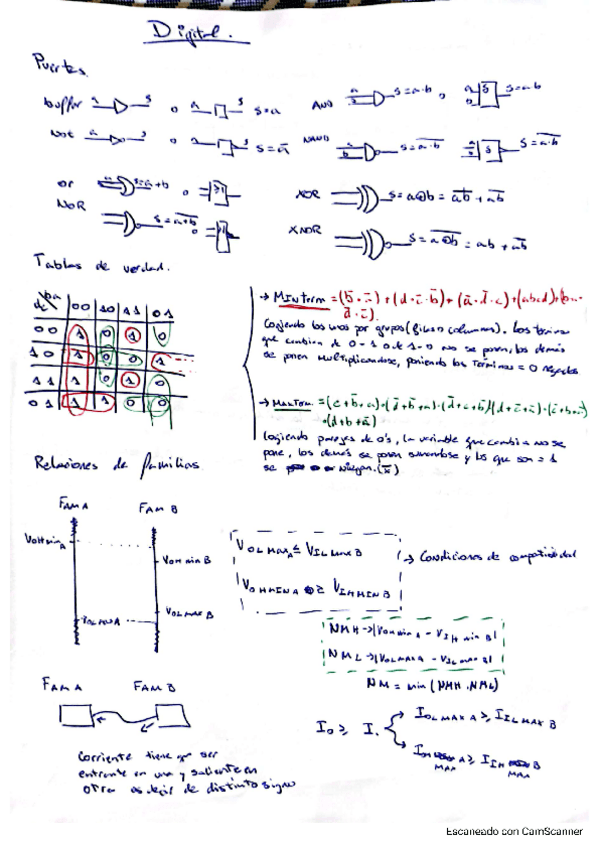 Digital.
Puertas.
buffer a s o a s s=a
AND a b s=a·b o a b s=a·b
Not a s o a s=a̅
NAND a b s=a̅·̅b̅ s=a̅·̅b̅
or s=a+b o ≥1
NOR s=a̅+̅b̅ o
XOR s=a⊕b = a̅b + ab̅
XNOR s=a̅⊕̅b̅ = ab + a̅b̅
Tablas de verdad.
ba
dc 00 10 11 01
00 1 0 1 0
10 1 0 0 1
11 1 0 1 0
01 1 1 0 0
→ Minterm = (b̅·a̅) +
Cogiendo los unos por grupos (filas o columnas). Los terminos
que cambian de 0-1 o de 1-0 no se ponen, los demás
se ponen multiplicandose, poniendo los terminos = 0 negados
→ Maxterm
·(d+b+a̅)
Cogiendo parejas de 0's, la variable que cambia no se
pone, los demás se ponen sumandose y los que son = 1
se niegan. (x̅)
Relaciones de familias
FAM A FAM B
VOHminA VOHminB
VOLMAXA VOLMAXB
VOLMAXA ≤ VILMAXB
VOHMINA ≥ VIHMINB
→ Condiciones de compatibilidad
NMH → |VOHminA - VIHminB|
NML → |VOLmaxA - VILmaxB|
NM = min (NMH, NML)
FAM A FAM B
Io ≥ I.
IOLMAXA ≥ IILMAXB
IOH MAX A ≥ IIH MAX B
Corriente tiene que ser
entrante en una y saliente en
otra es decir de distinto signo
Escaneado con CamScanner